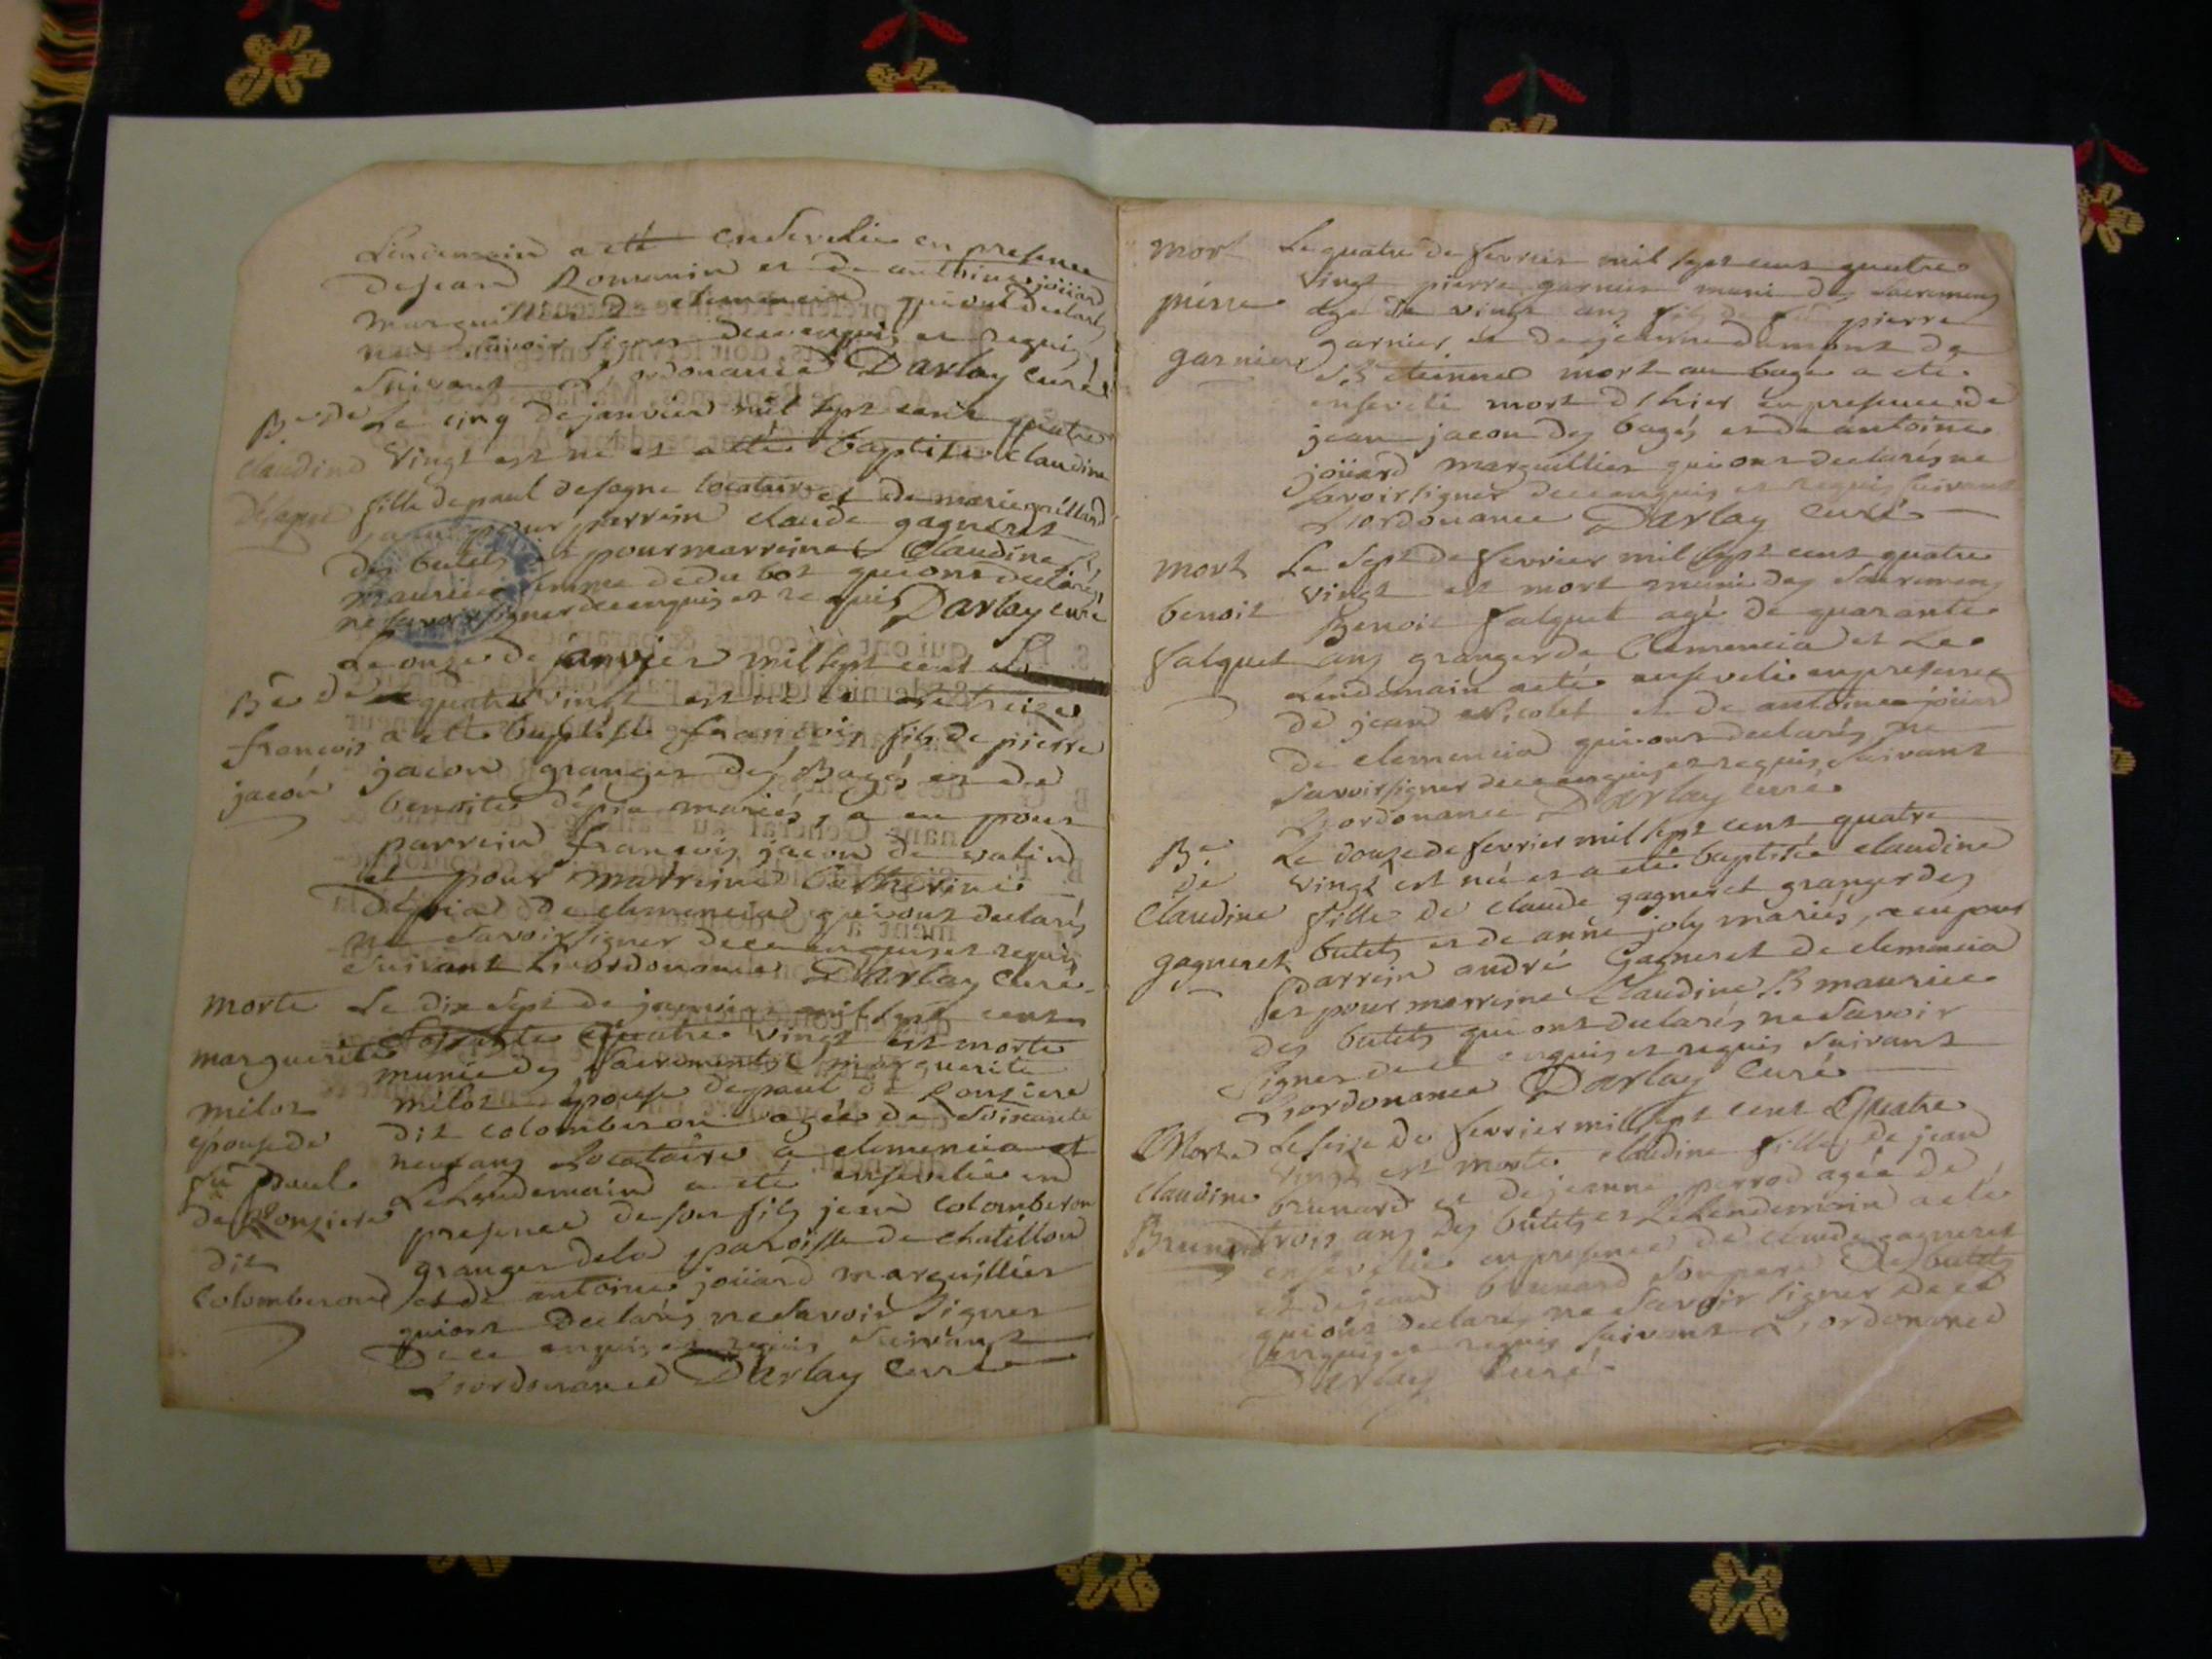 Lendemain a eté ensevelie en presence
de jean Romanin et de antoine joüard
marguillier de clemencia qui ont declarés
ne savoir signer de ce enquis et requis
suivant L'ordonance Darlay curé
Be de
claudine
Le cinq de janvier mil sept cent quatre
vingt est né et a eté baptisée claudine
fille de paul locataire et de marie
a eu pour parrein claude gagneret
des butets et pour marreine Claudine
maurice femme de du bost qui ont declarés
ne savoir signer de ce enquis et requis Darlay curé
Be de
francois
jacon
Le onze de janvier mil sept cent
quatre vingt est né et le treize
a eté baptisé francois fils de pierre
jacon granger des Bagés et de
benoite dépra mariés, a eu pour
parrein francois jacon de
et pour marreine catherine
dépra de clemencia qui ont declarés
ne savoir signer de ce enquis et requis
suivant L'ordonance Darlay Curé
morte
marguerite
milot
épouse de
fû paul
de Ronziere
dit
Colomberon
Le dix sept de janvier mil sept cent
quatre vingt est morte
munie des sacrements marguerite
milot épouse de paul de Ronziere
dit colomberon agée de soixante
neuf ans Locataire a clemencia et
Le Lendemain a eté ensevelie en
presence de son fils jean Colomberon
granger de la paroisse de chatillon
et de antoine joüard marguillier
qui ont declarés ne savoir signer
De ce enquis et requis suivant
L'ordonance Darlay Curé
mort
pierre
garnier
Le quatre de fevrier mil sept cent quatre
vingt pierre garnier muni des sacremens
agé de vingt ans fils de pierre
garnier et de jeanne dumont de
St etienne mort au bagé a eté
enseveli mort d'hier en presence de
jean jacon des bagés et de antoine
joüard marguillier qui ont declarés ne
savoir signer de ce enquis et requis suivant
L'ordonance Darlay Curé
mort
benoit
falquet
Le sept de fevrier mil sept cent quatre
vingt est mort muni des sacremens
Benoit falquet agé de quarante
ans granger de Clemencia et Le
Lendemain a eté enseveli en presence
de jean Nicolet et de antoine joüard
de clemencia qui ont declarés ne
savoir signer de ce enquis et requis suivant
L'ordonance Darlay curé
Be
de
Claudine
gagneret
Le douze de fevrier mil sept cent quatre
vingt est né et a eté baptisée claudine
fille de claude gagneret granger des
butets et de anne joly mariés, a eu pour
parrein andré Gagneret de clemencia
et pour marreine Claudine B maurice
des butets qui ont declarés ne savoir
signer de ce enquis et requis suivant
L'ordonance Darlay Curé
Morte
claudine
Brunard
Le seize de fevrier mil sept cent Quatre
vingt est morte claudine fille de jean
brunard et de jeanne perrod agée de
trois ans des butets et Le Lendemain a eté
ensevelie en presence de claude gagneret
et de jean brunard son pere des butets
qui ont declarés ne savoir signer de ce
enquis et requis suivant L'ordonance
Darlay Curé